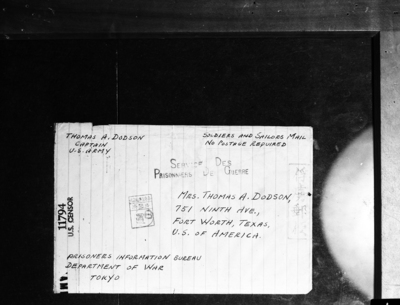 THOMAS A. DODSON
CAPTAIN
U.S. ARMY
SOLDIERS AND SAILORS MAIL
NO POSTAGE REQUIRED
SERVICE DES
PRISONNIERS DE GUERRE
MRS. THOMAS A. DODSON,
751 NINTH AVE.,
FORT WORTH, TEXAS,
U.S. OF AMERICA.
11794
U.S. CENSOR
PRISONERS INFORMATION BUREAU
DEPARTMENT OF WAR
TOKYO